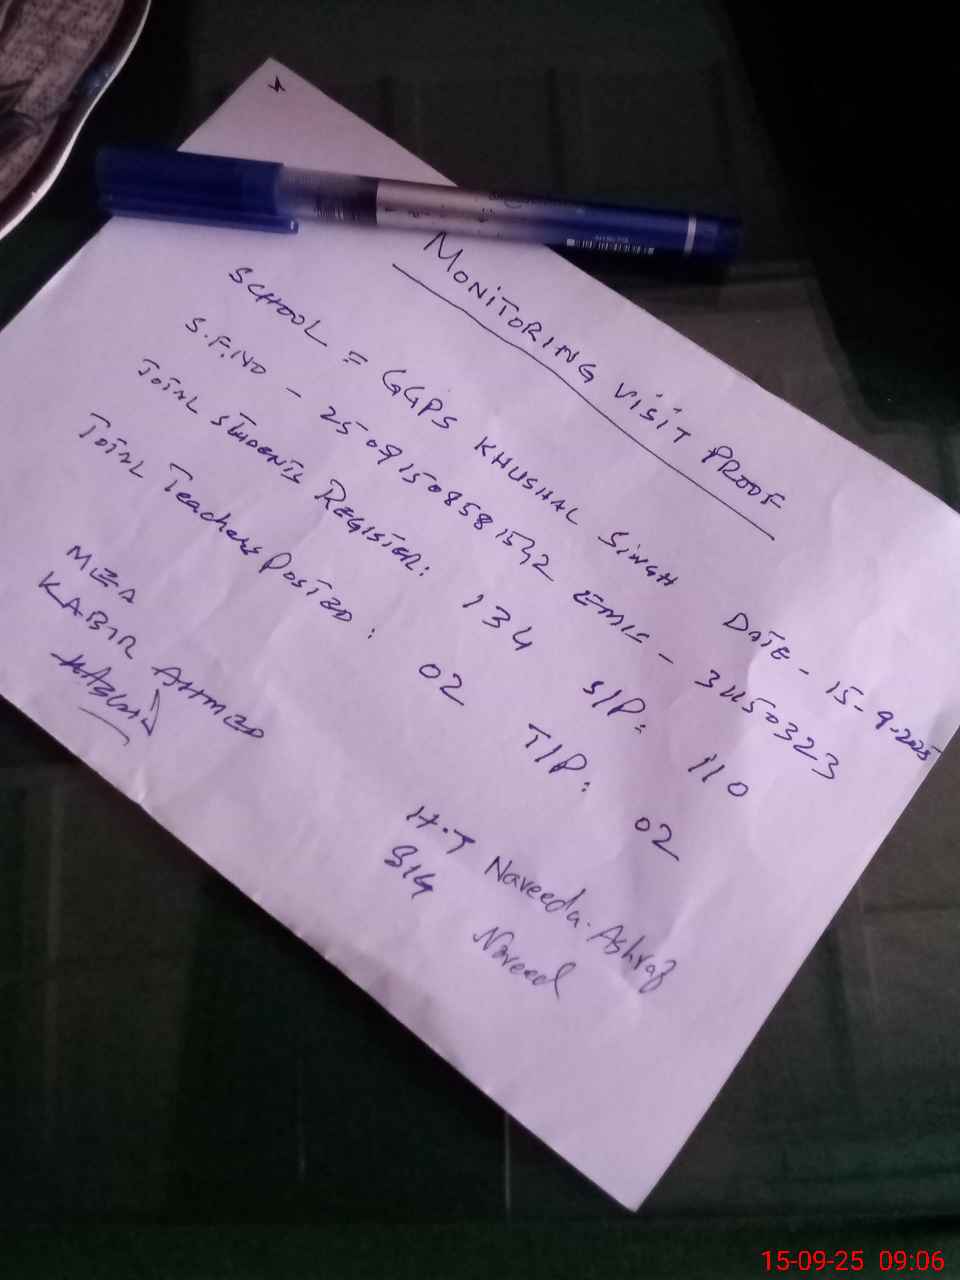 MONITORING VISIT PROOF
SCHOOL = GGPS KHUSHAL SINGH DATE - 15-9-2025
S.F.NO - 25091508581542 EMIS -
TOTAL STUDENTS REGISTER: 134 S/P: 110
TOTAL Teachers POSTED: 02 T/P: 02
MEA
KABIR AHMED
H.T Naveeda Ashraf
SIG
Naveed
15-09-25 09:06